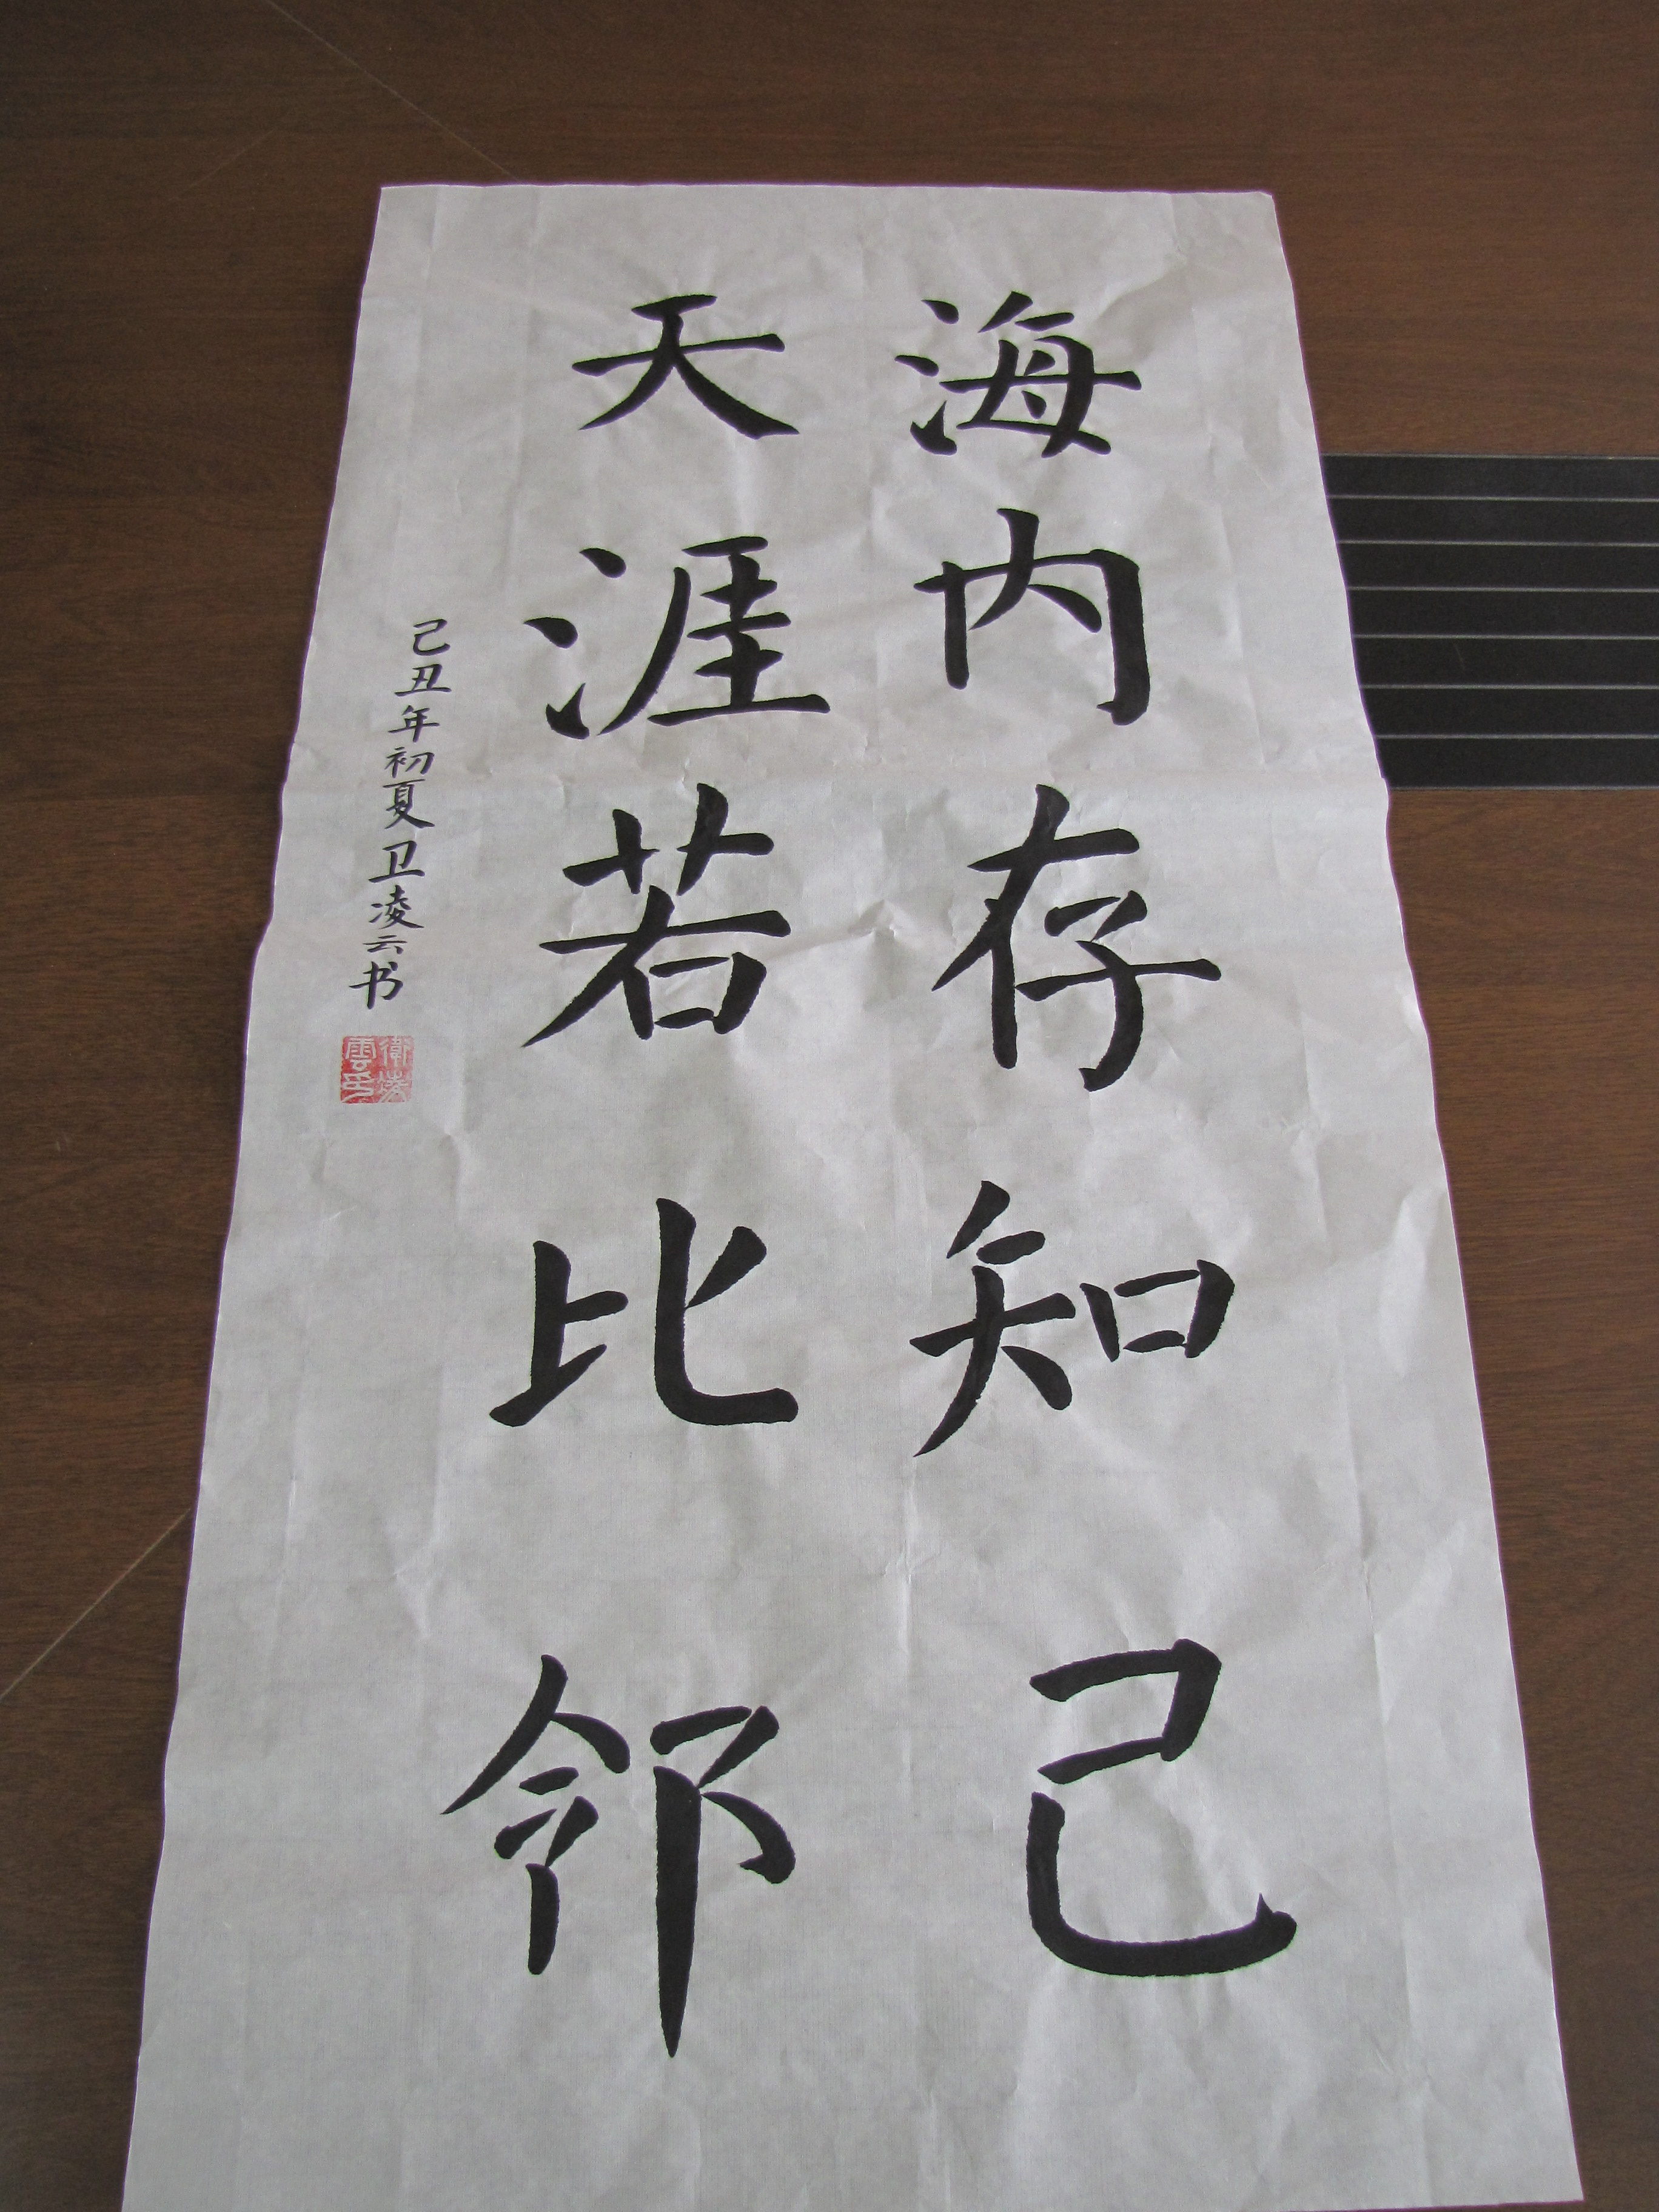 海内存知己
天涯若比邻
己丑年初夏卫凌云书
衛凌雲印